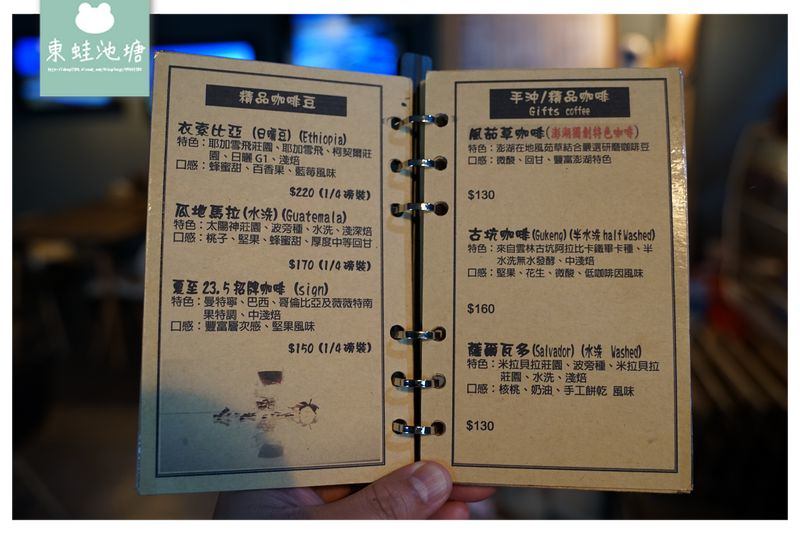 東蛙池塘
精品咖啡豆
衣索比亞 (日曬豆) (Ethiopia)
特色：耶加雪飛莊園、耶加雪飛、柯契爾莊
園、日曬 G1、淺焙
口感：蜂蜜甜、百香果、藍莓風味
$220 (1/4磅裝)
瓜地馬拉(水洗)(Guatemala)
特色：太陽神莊園、波旁種、水洗、淺深焙
口感：桃子、堅果、蜂蜜甜、厚度中等回甘
$170 (1/4磅裝)
夏至 23.5 招牌咖啡 (sign)
特色：曼特寧、巴西、哥倫比亞及薇薇特南
果特調、中淺焙
口感：豐富層次感、堅果風味
$150 (1/4磅裝)
手沖/精品咖啡
Gifts coffee
風茹草咖啡(澎湖獨創特色咖啡)
特色：澎湖在地風茹草結合嚴選研磨咖啡豆
口感：微酸、回甘、豐富澎湖特色
$130
古坑咖啡(Gukeng)(半水洗 half Washed)
特色：來自雲林古坑阿拉比卡鐵畢卡種、半
水洗無水發酵、中淺焙
口感：堅果、花生、微酸、低咖啡因風味
$160
薩爾瓦多(Salvador)(水洗 Washed)
特色：米拉貝拉莊園、波旁種、米拉貝拉
莊園、水洗、淺焙
口感：核桃、奶油、手工餅乾 風味
$130